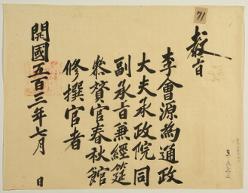 教旨
李會源爲通政
大夫承政院同
副承旨兼經筵
參贊官春秋館
修撰官者
開國五百三年七月 日
71